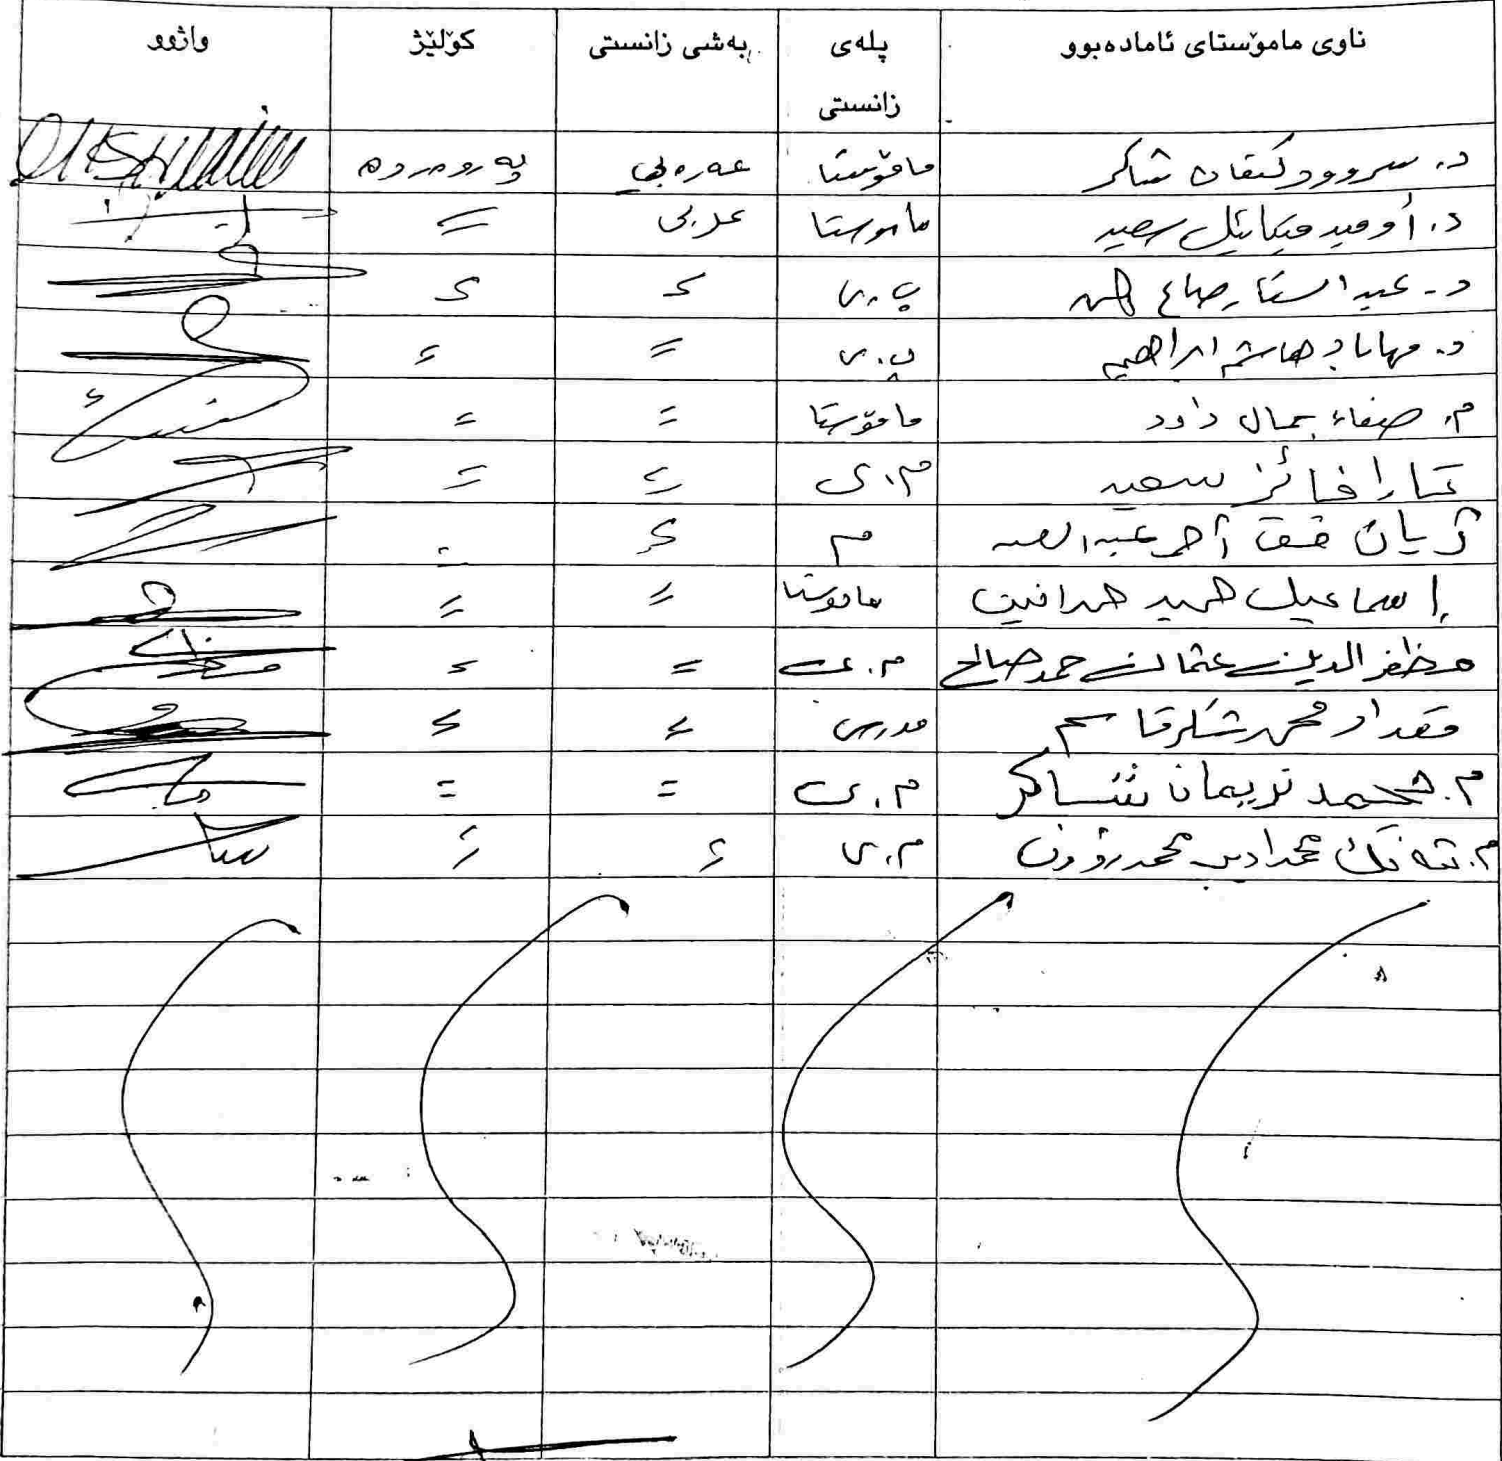 ناوی مامۆستای ئامادەبوو پلەی زانستی بەشی زانستی کۆلێژ واژوو
د. سروود کنعان شاکر مامۆستا عەرەبی پەروەردە
د. أوميد ميكائيل سعيد مامۆستا عربی =
د. عبد الستار صالح پ.ی = =
د. مهاباد هاشم ابراهيم پ.ی = =
م. صفاء جمال داود مامۆستا = =
تارا فائز سعيد م.ی = =
ژیان أحمد عبدالله م = =
إسماعيل حميد مامۆستا = =
مظفرالدين عثمان حمد صالح م.ی = =
مقداد محمد شكر قاسم مدرس = =
م. محمد نريمان شاكر م.ی = =
م. محمد رؤوف م.ی = =